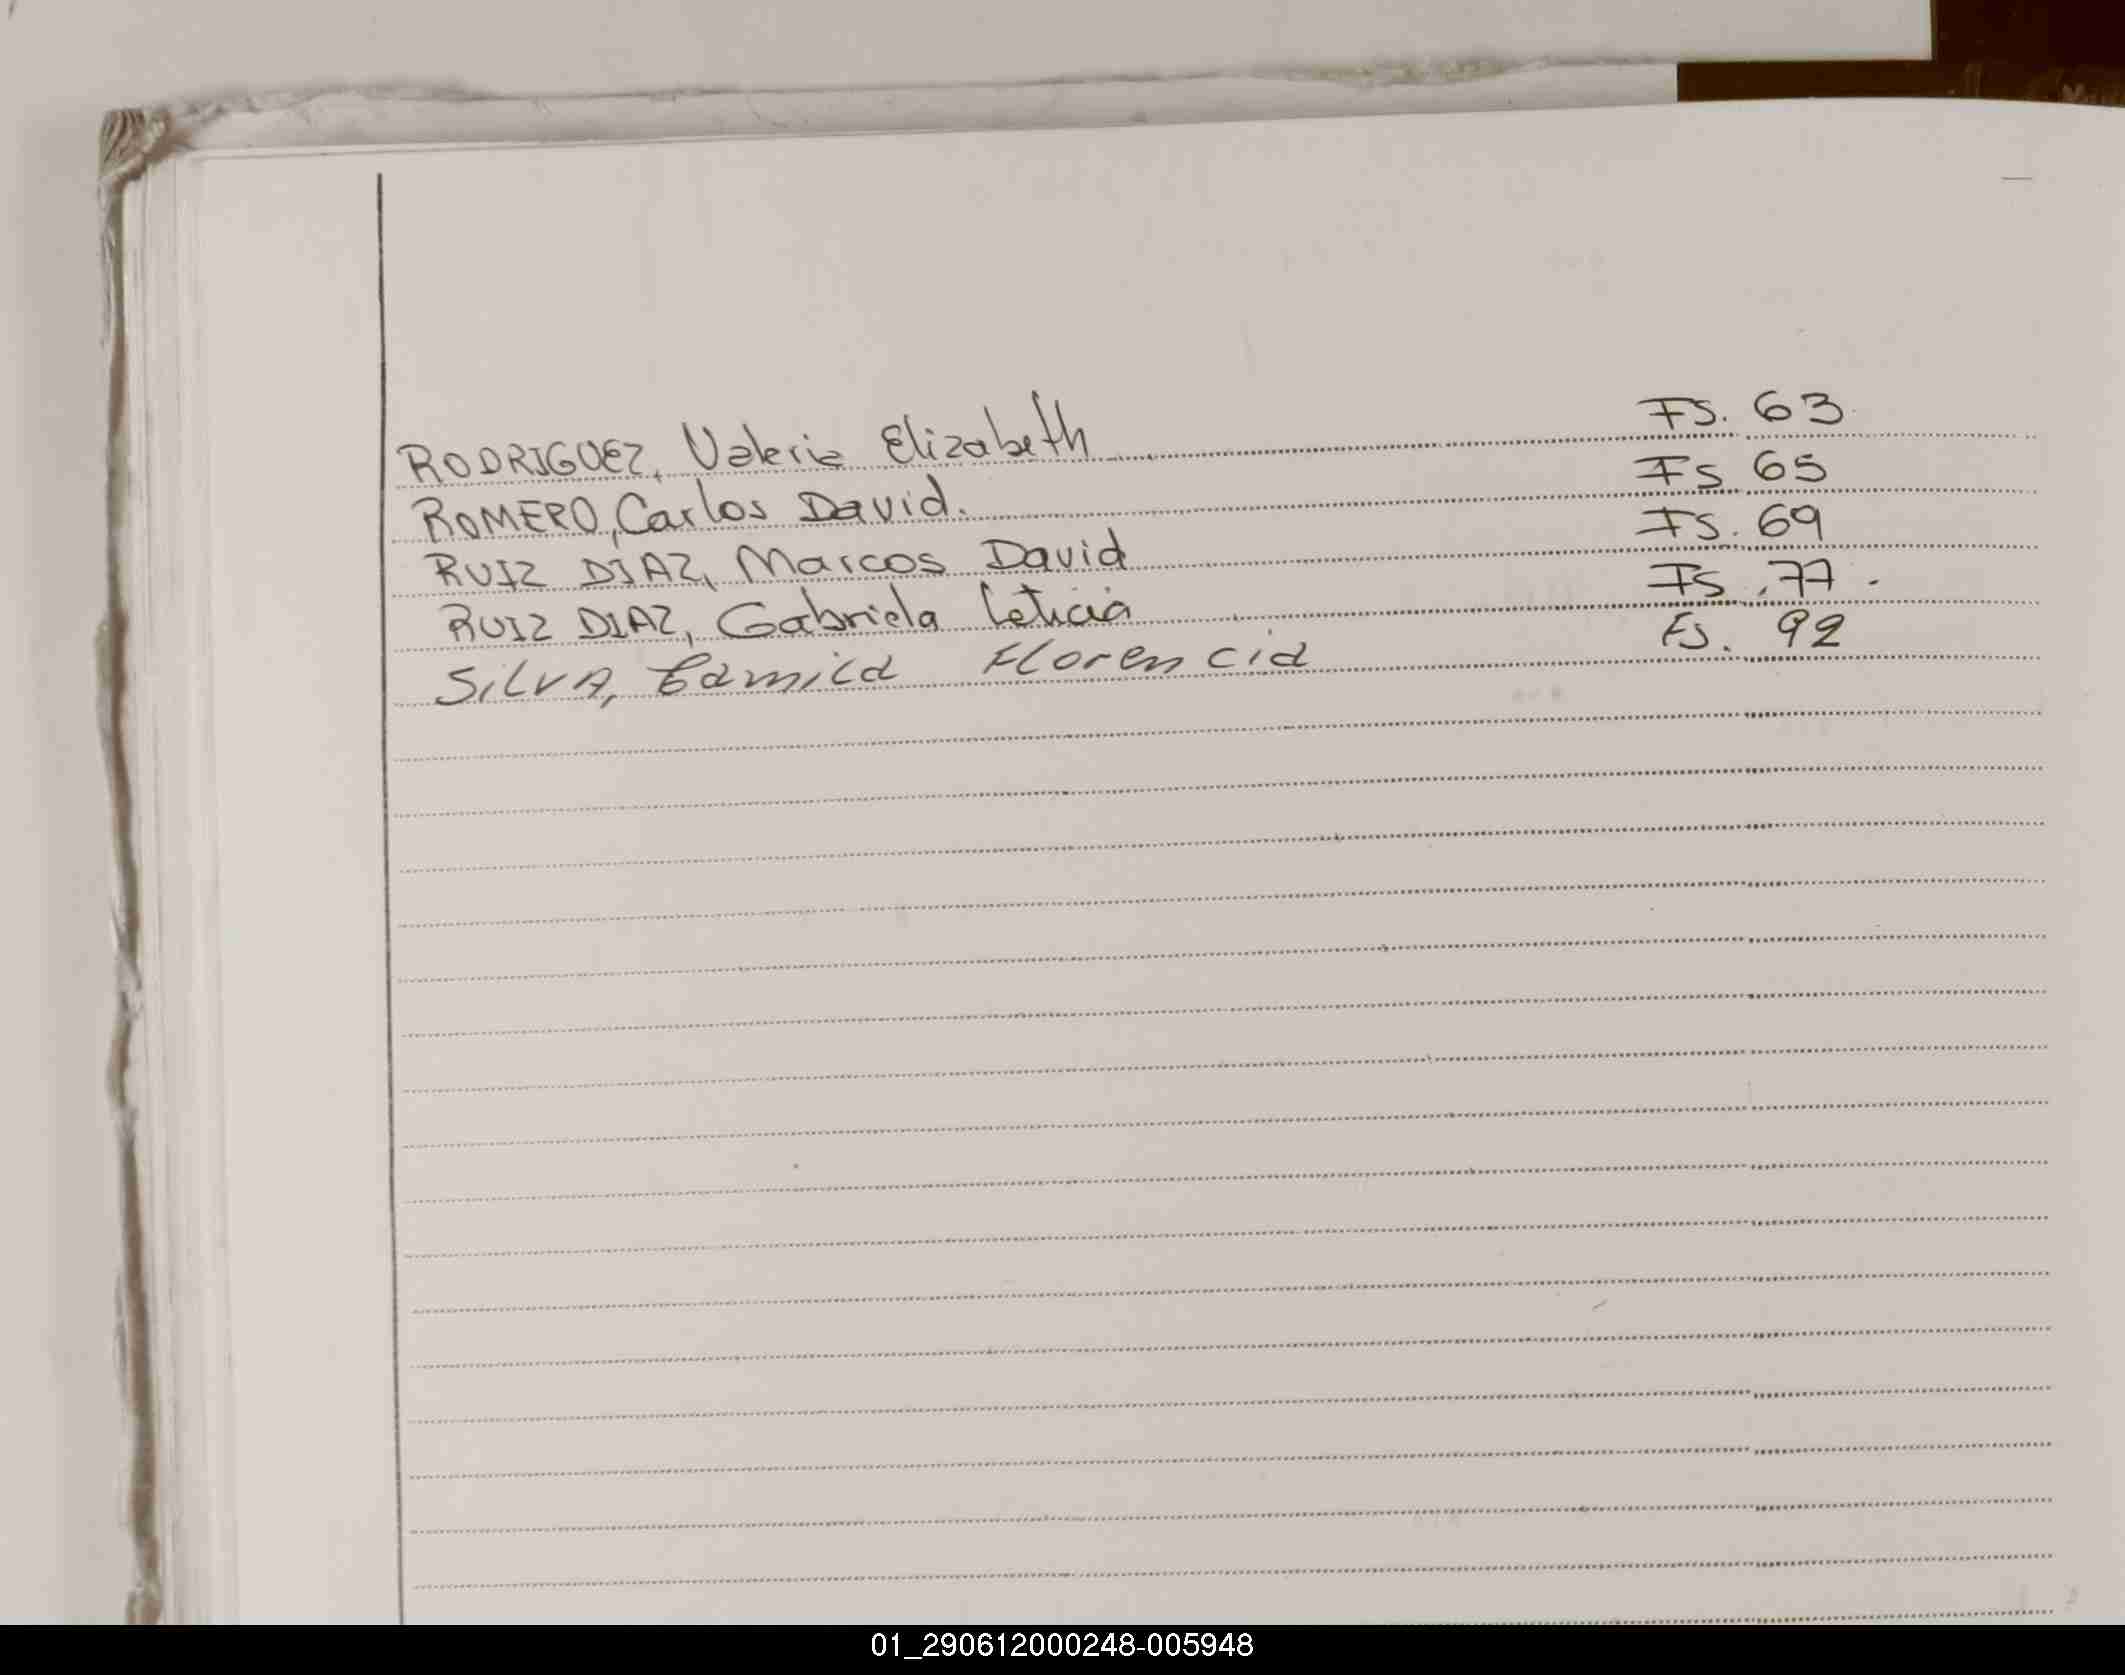 RODRIGUEZ, Valeria Elizabeth Fs. 63
ROMERO, Carlos David. Fs 65
RUIZ DIAZ, Marcos David Fs. 69
RUIZ DIAZ, Gabriela Leticia Fs. 77.
SILVA, Camila Florencia Fs. 92
01_290612000248-005948